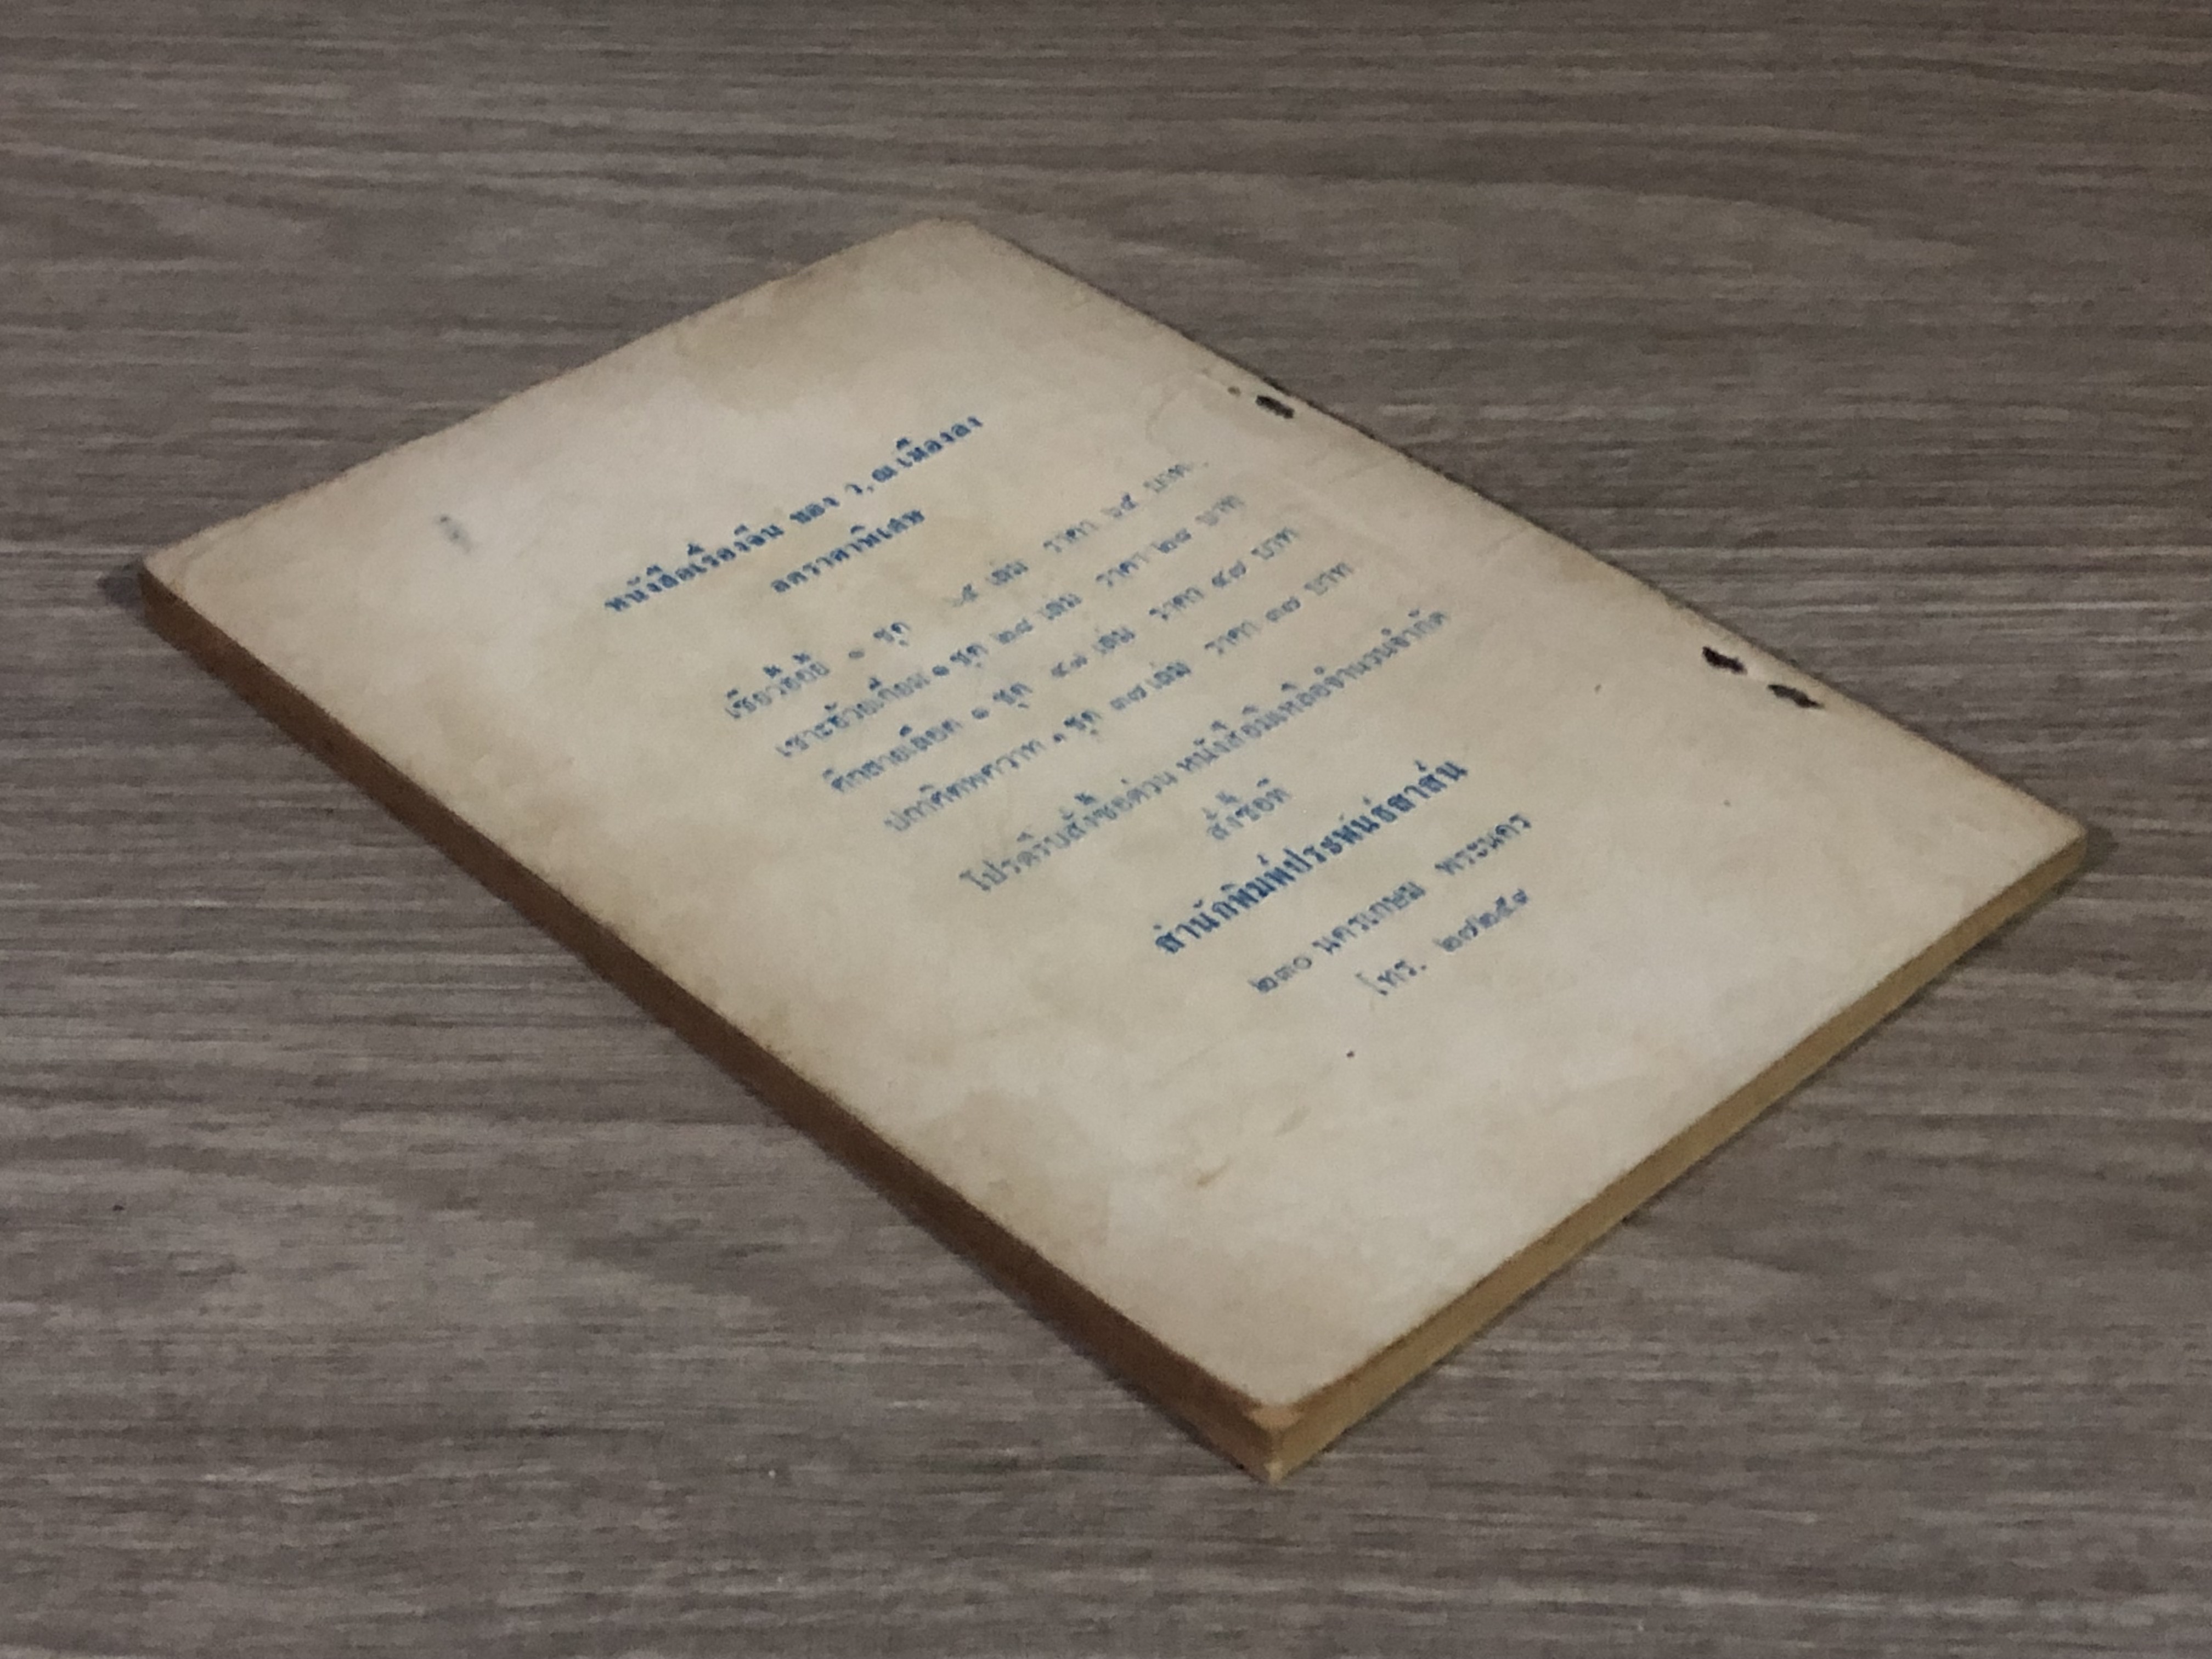 หนังสือเรื่องจีน ของ ว. ณ เมืองลุง
ลดราคาพิเศษ
เซียวฮื้อยี้ ๑ ชุด ๖๕ เล่ม ราคา ๖๕ บาท
๑ ชุด ๒๘ เล่ม ราคา ๒๘ บาท
ศึกสายเลือด ๑ ชุด ๔๗ เล่ม ราคา ๔๗ บาท
๑ ชุด ๓๗ เล่ม ราคา ๓๗ บาท
โปรดรีบสั่งซื้อด่วน หนังสือมีเหลือจำนวนจำกัด
สั่งซื้อที่
สำนักพิมพ์ประพันธ์สาส์น
๒๓๐ นครเกษม พระนคร
โทร.